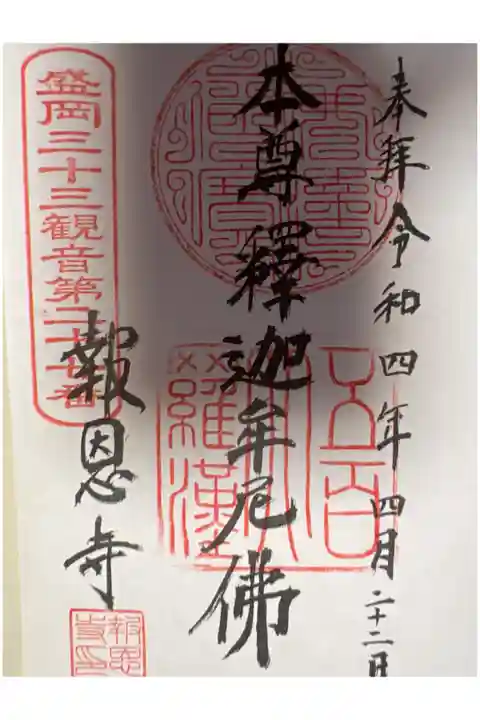 奉拝 令和四年四月二十二日
本尊釋迦牟尼佛
五百羅漢
盛岡三十三観音第二十七番
報恩寺
報恩寺印